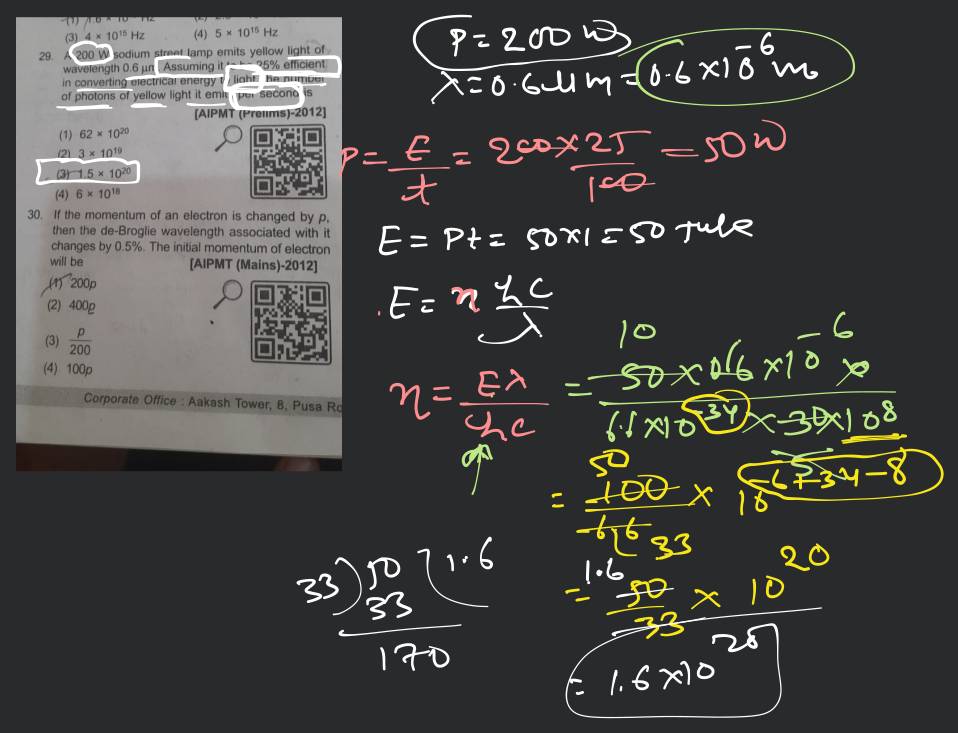 (3) 4 × 10¹⁵ Hz (4) 5 × 10¹⁵ Hz
29. A 200 W sodium street lamp emits yellow light of
wavelength 0.6 μm Assuming it 25% efficient
in converting electrical energy light, he number
of photons of yellow light it emi per second is
[AIPMT (Prelims)-2012]
(1) 62 × 10²⁰
(2) 3 × 10¹⁹
(3) 1.5 × 10²⁰
(4) 6 × 10¹⁸
30. If the momentum of an electron is changed by p,
then the de-Broglie wavelength associated with it
changes by 0.5%. The initial momentum of electron
will be [AIPMT (Mains)-2012]
(1) 200p
(2) 400p
(3) p/200
(4) 100p
Corporate Office : Aakash Tower, 8, Pusa Ro
P = 200 W
λ = 0.6 μm = 0.6 × 10⁻⁶ m
P = E/t = 200 × 25/100 = 50 W
E = Pt = 50 × 1 = 50 Jule
E = n hc/λ
n = Eλ/hc
= 100/6.6 × 10
50 33
= 50/33 × 10²⁰
1.6
= 1.6 × 10²⁰
33) 50 ( 1.6
33
170